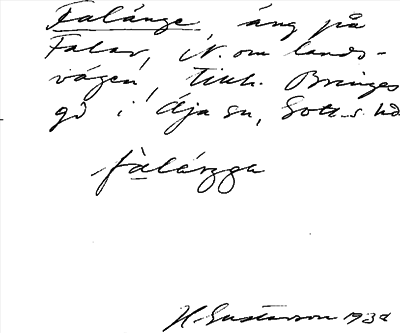 Falänge, äng på
Falar, N. om lands-
vägen, tillh. Bringes
gd i Öja sn, Gotl. s. hd
falängga
H. Gustavson 1938